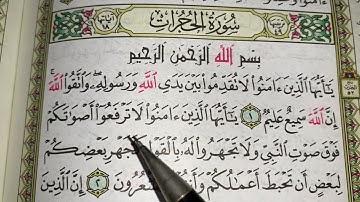 سُورَةُ الحُجُرَاتِ
بِسْمِ اللَّهِ الرَّحْمَٰنِ الرَّحِيمِ
يَٰٓأَيُّهَا الَّذِينَ ءَامَنُوا لَا تُقَدِّمُوا بَيْنَ يَدَيِ اللَّهِ وَرَسُولِهِۦ وَاتَّقُوا اللَّهَ
إِنَّ اللَّهَ سَمِيعٌ عَلِيمٌ ١ يَٰٓأَيُّهَا الَّذِينَ ءَامَنُوا لَا تَرْفَعُوٓا أَصْوَٰتَكُمْ
فَوْقَ صَوْتِ النَّبِيِّ وَلَا تَجْهَرُوا لَهُۥ بِالْقَوْلِ كَجَهْرِ بَعْضِكُمْ
لِبَعْضٍ أَن تَحْبَطَ أَعْمَٰلُكُمْ وَأَنتُمْ تَشْعُرُونَ ٢ إِنَّ الَّذِينَ